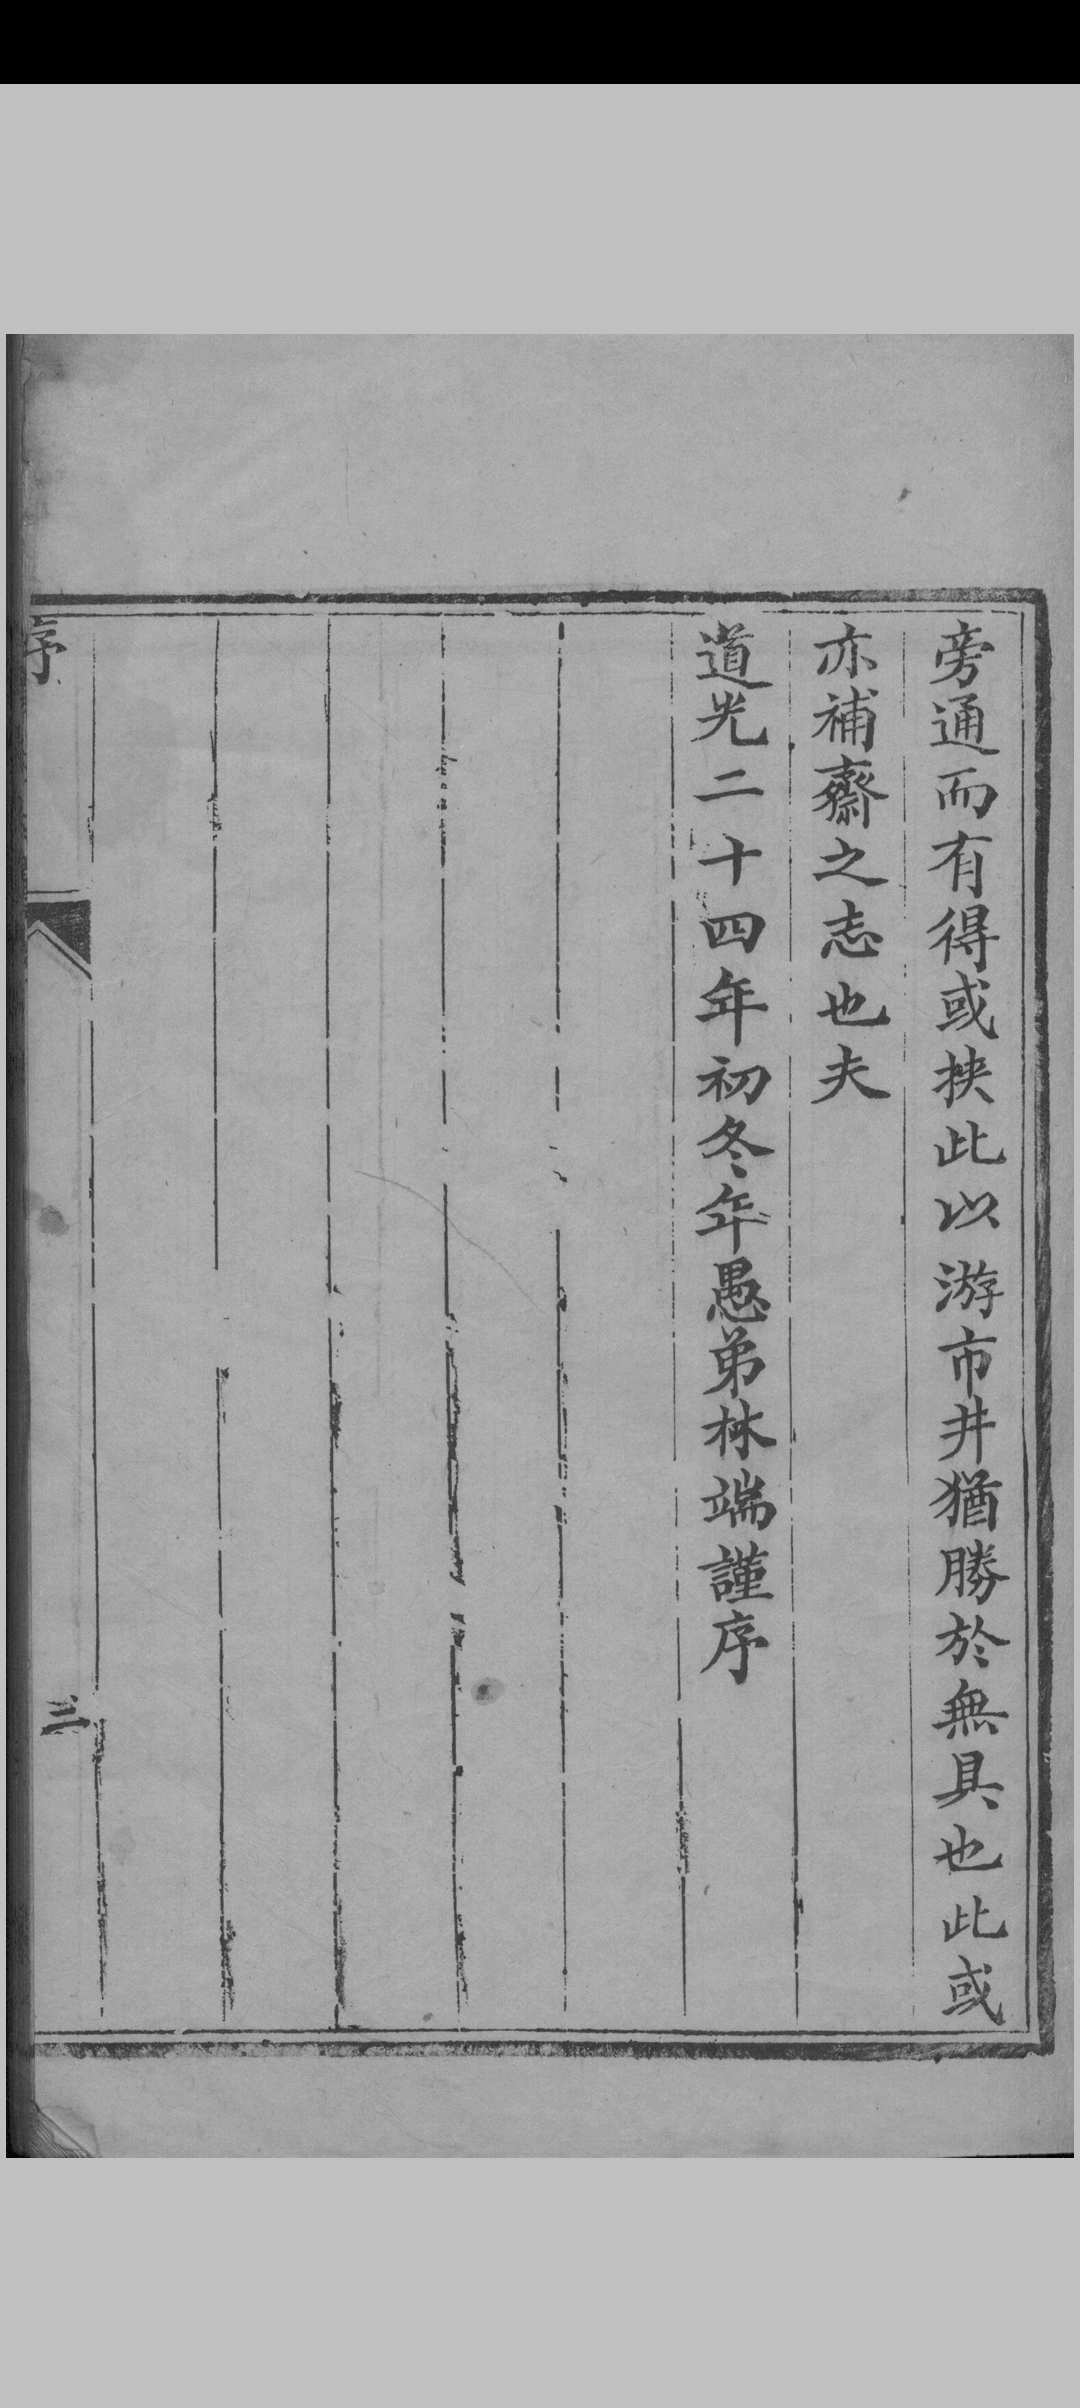 旁通而有得或挾此以游市井猶勝於無具也此或
亦補齋之志也夫
道光二十四年初冬年愚弟林端謹序
序
三